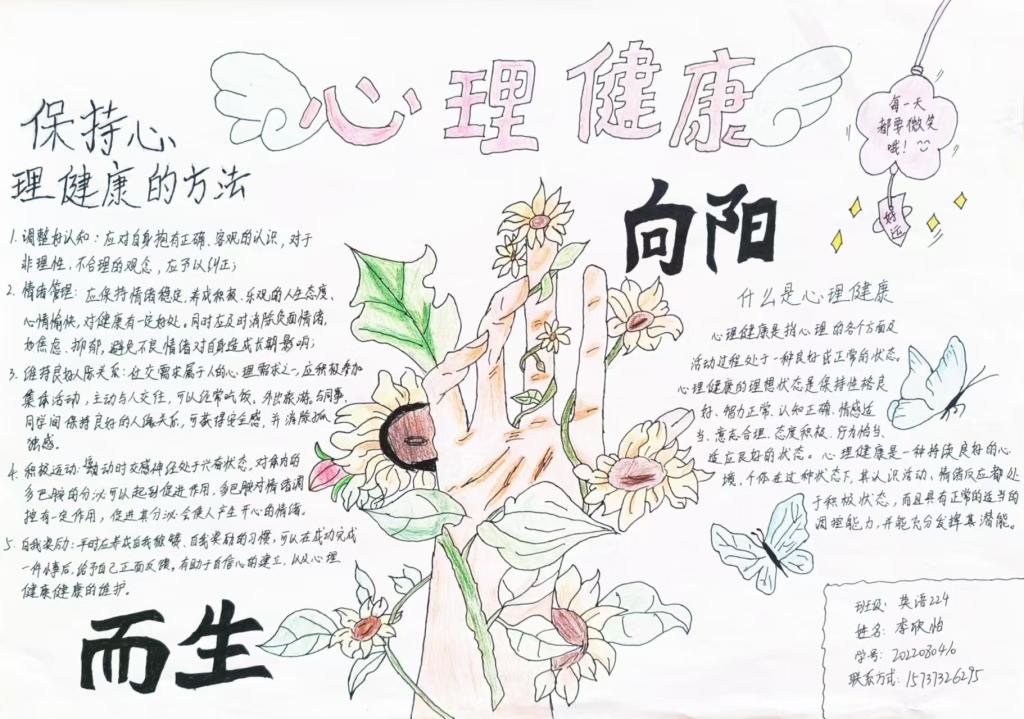 心理健康
保持心
理健康的方法
1. 调整好认知：应对自身抱有正确、客观的认识，对于
非理性、不合理的观念，应予以纠正；
2. 情绪管理：应保持情绪稳定，养成积极、乐观的人生态度、
心情愉快，对健康有一定好处。同时应及时消除负面情绪，
如焦虑、抑郁，避免不良情绪对自身造成长期影响；
3. 维持良好人际关系：社交需求属于人的心理需求之一，应积极参加
集体活动，主动与人交往，可以经常吃饭、外出旅游。与同事、
同学间保持良好的人际关系，可获得安全感，并消除孤
独感。
4. 积极运动：运动时交感神经处于兴奋状态，对体内的
多巴胺的分泌可以起到促进作用，多巴胺对情绪调
控有一定作用，促进其分泌会使人产生开心的情绪。
5. 自我奖励：平时应养成自我激励、自我奖励的习惯，可以在成功完成
一件事后，给予自己正面反馈。有助于自信心的建立，以及心理
健康健康的维护。
而生
向阳
每一天
都要微笑
哦！
好运
什么是心理健康
心理健康是指心理的各个方面及
活动过程处于一种良好或正常的状态。
心理健康的理想状态是保持性格良
好、智力正常、认知正确、情感适
当、意志合理、态度积极、行为恰当、
适应良好的状态。心理健康是一种持续良好的心
境，个体在这种状态下，其认识活动、情绪反应都处
于积极状态，而且具有正常的适当的
调理能力，并能充分发挥其潜能。
班级：英语224
姓名：李欣怡
学号：2022080416
联系方式：15737326295